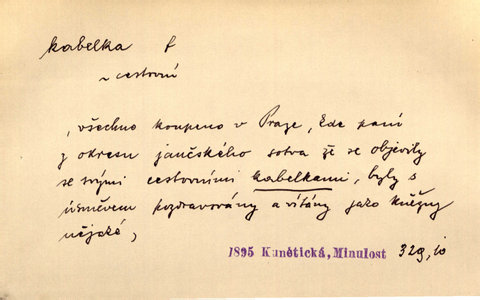 kabelka f
~ cestovní
„všechno koupeno v Praze, kde paní
z okresu jančského sotva že se objevily
se svými cestovními kabelkami, byly s
úsměvem pozdravovány a vítány jako kněžny
nějaké„
1895 Kunětická, Minulost 329, io